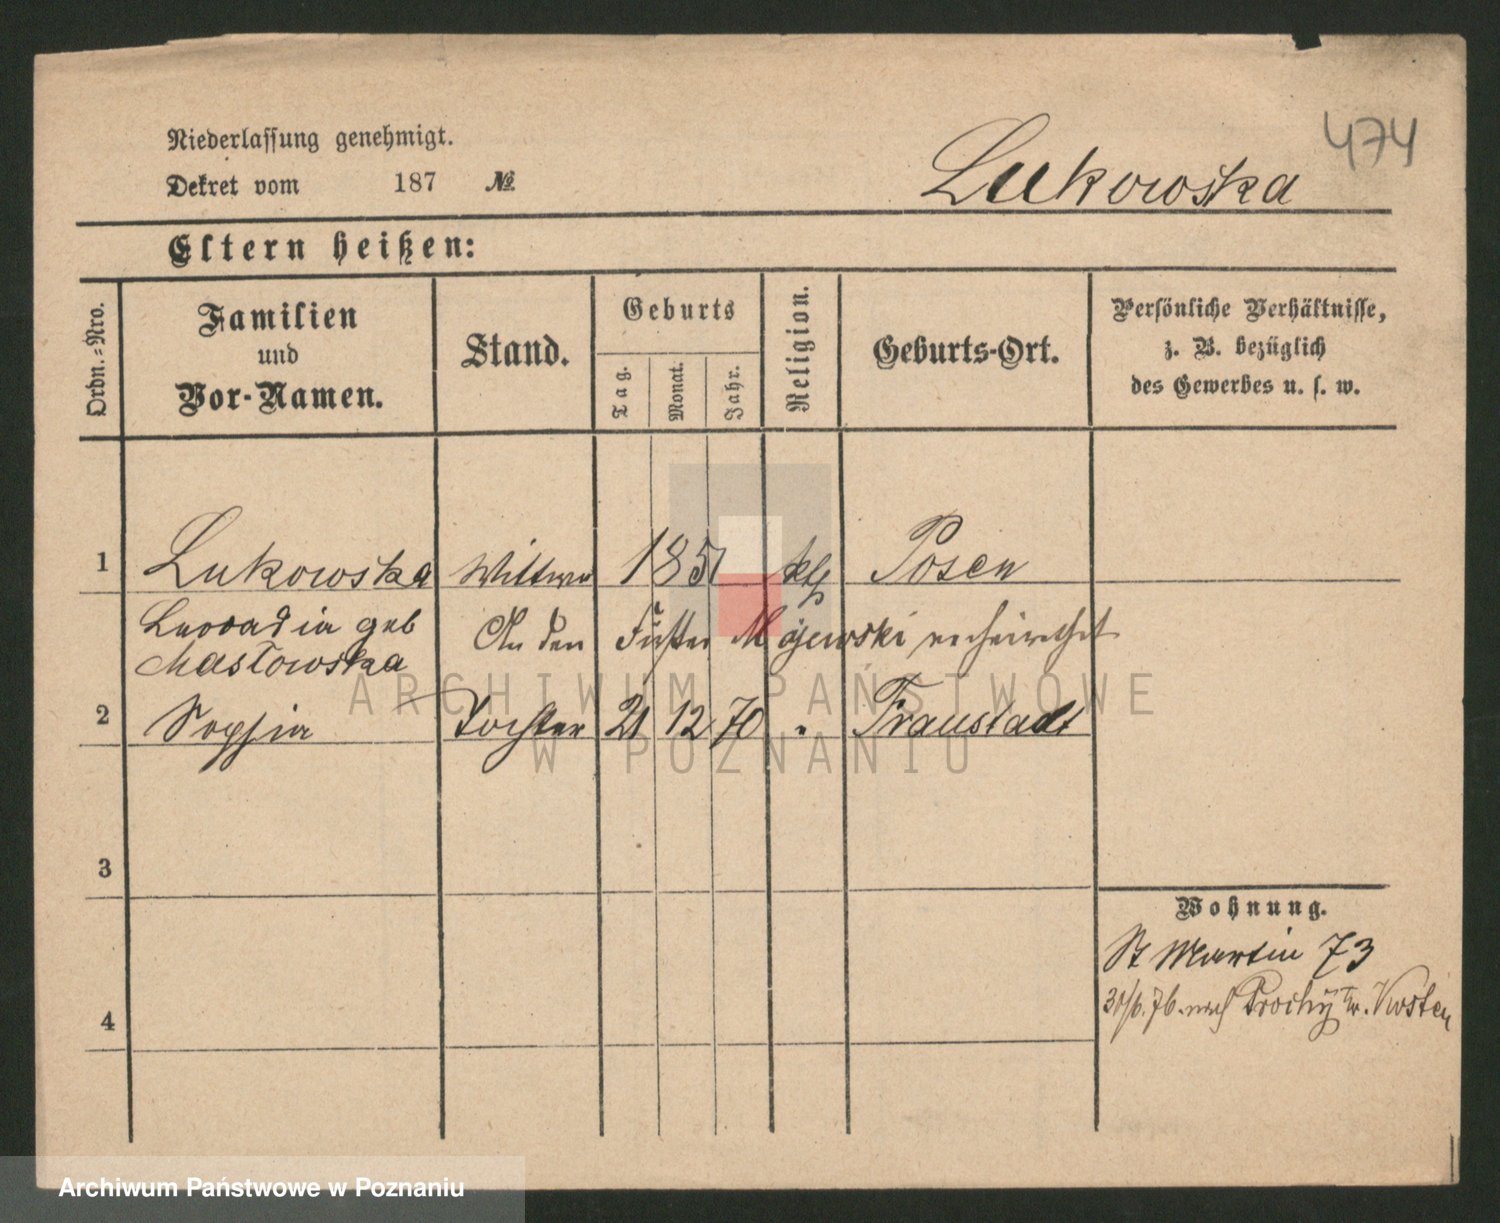 474
Niederlassung genehmigt.
Dekret vom 187 №
Lukowska
Eltern heißen:
Ordn.-Nro.
Familien
und
Vor-Namen.
Stand.
Geburts
Tag.
Monat.
Jahr.
Religion.
Geburts-Ort.
Persönliche Verhältnisse,
z. B. bezüglich
des Gewerbes u. s. w.
1 Lukowska Wittwe 1851 kth Posen
Leocadia geb
Masłowska
An den Majewski verheirathet
2 Sophia Tochter 21 12 70 " Fraustadt
3
4
Wohnung.
St Martin 73
30/6. 76. nach Kr. Kosten
ARCHIWUM PAŃSTWOWE
W POZNANIU
Archiwum Państwowe w Poznaniu